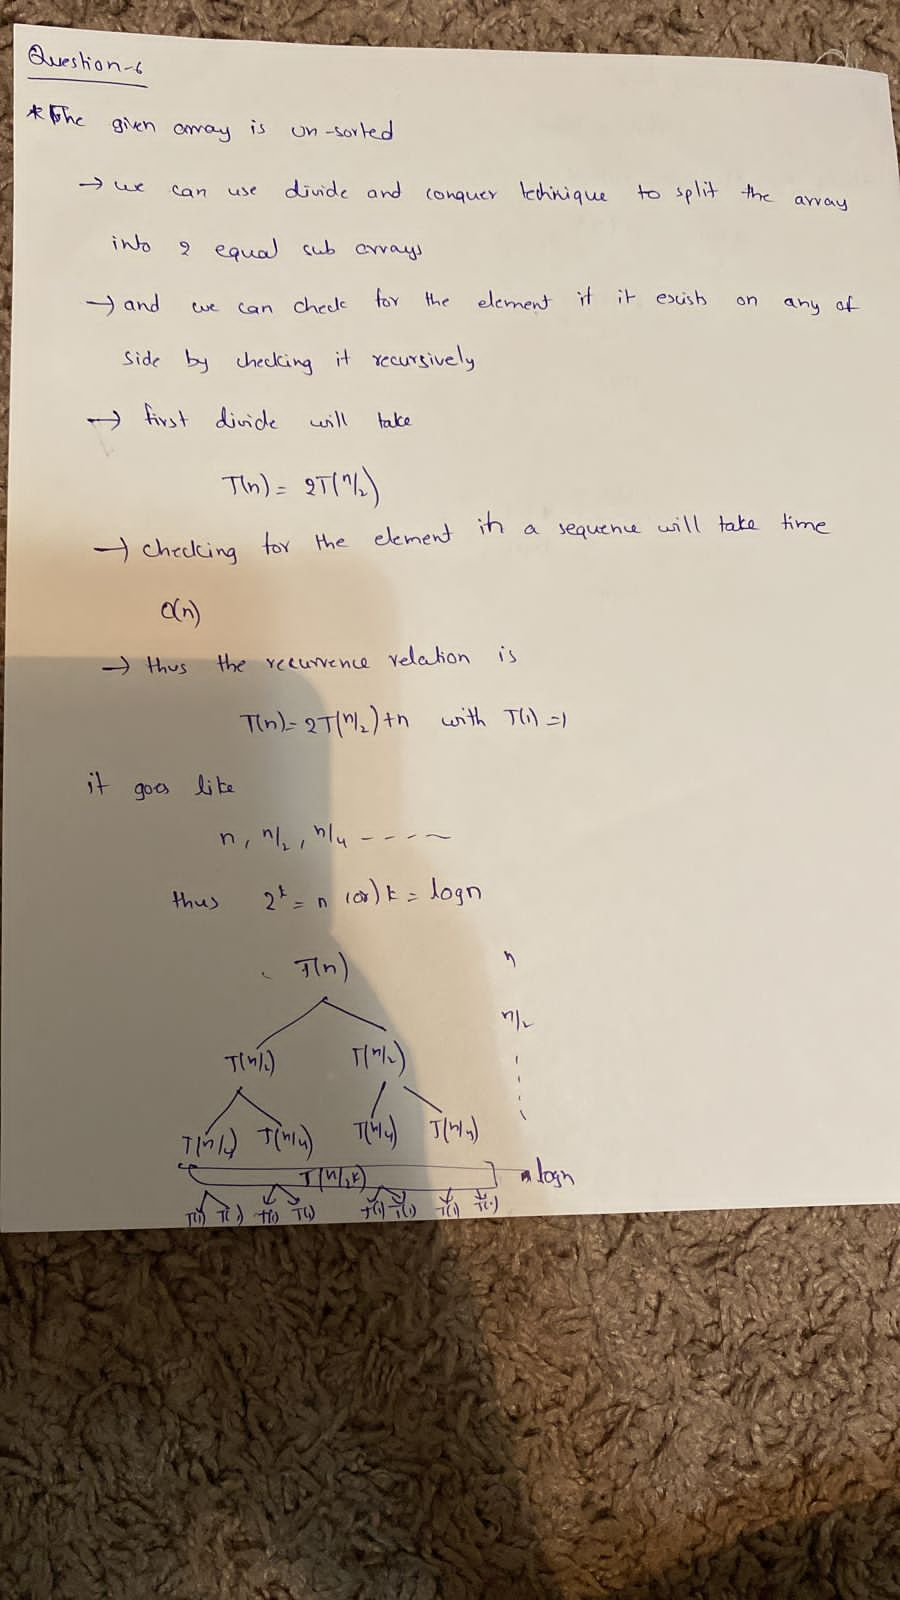 Question-6
* The given array is un-sorted
→ we can use divide and conquer tehinique to split the array
into 2 equal sub arrays
→ and we can check for the element if it exists on any of
side by checking it recursively
→ first divide will take
T(n) = 2T(n/2)
→ checking for the element in a sequence will take time
O(n)
→ thus the recurrence relation is
T(n) = 2T(n/2)+n with T(1) = 1
it goes like
n, n/2, n/4 - - - -
thus 2^k = n (or) k = logn
T(n) n
n/2
T(n/2) T(n/2)
T(n/4) T(n/4) T(n/4) T(n/4)
T(n/2k) logn
T(1) T(1) T(1) T(1) T(1) T(1) T(1) T(1)